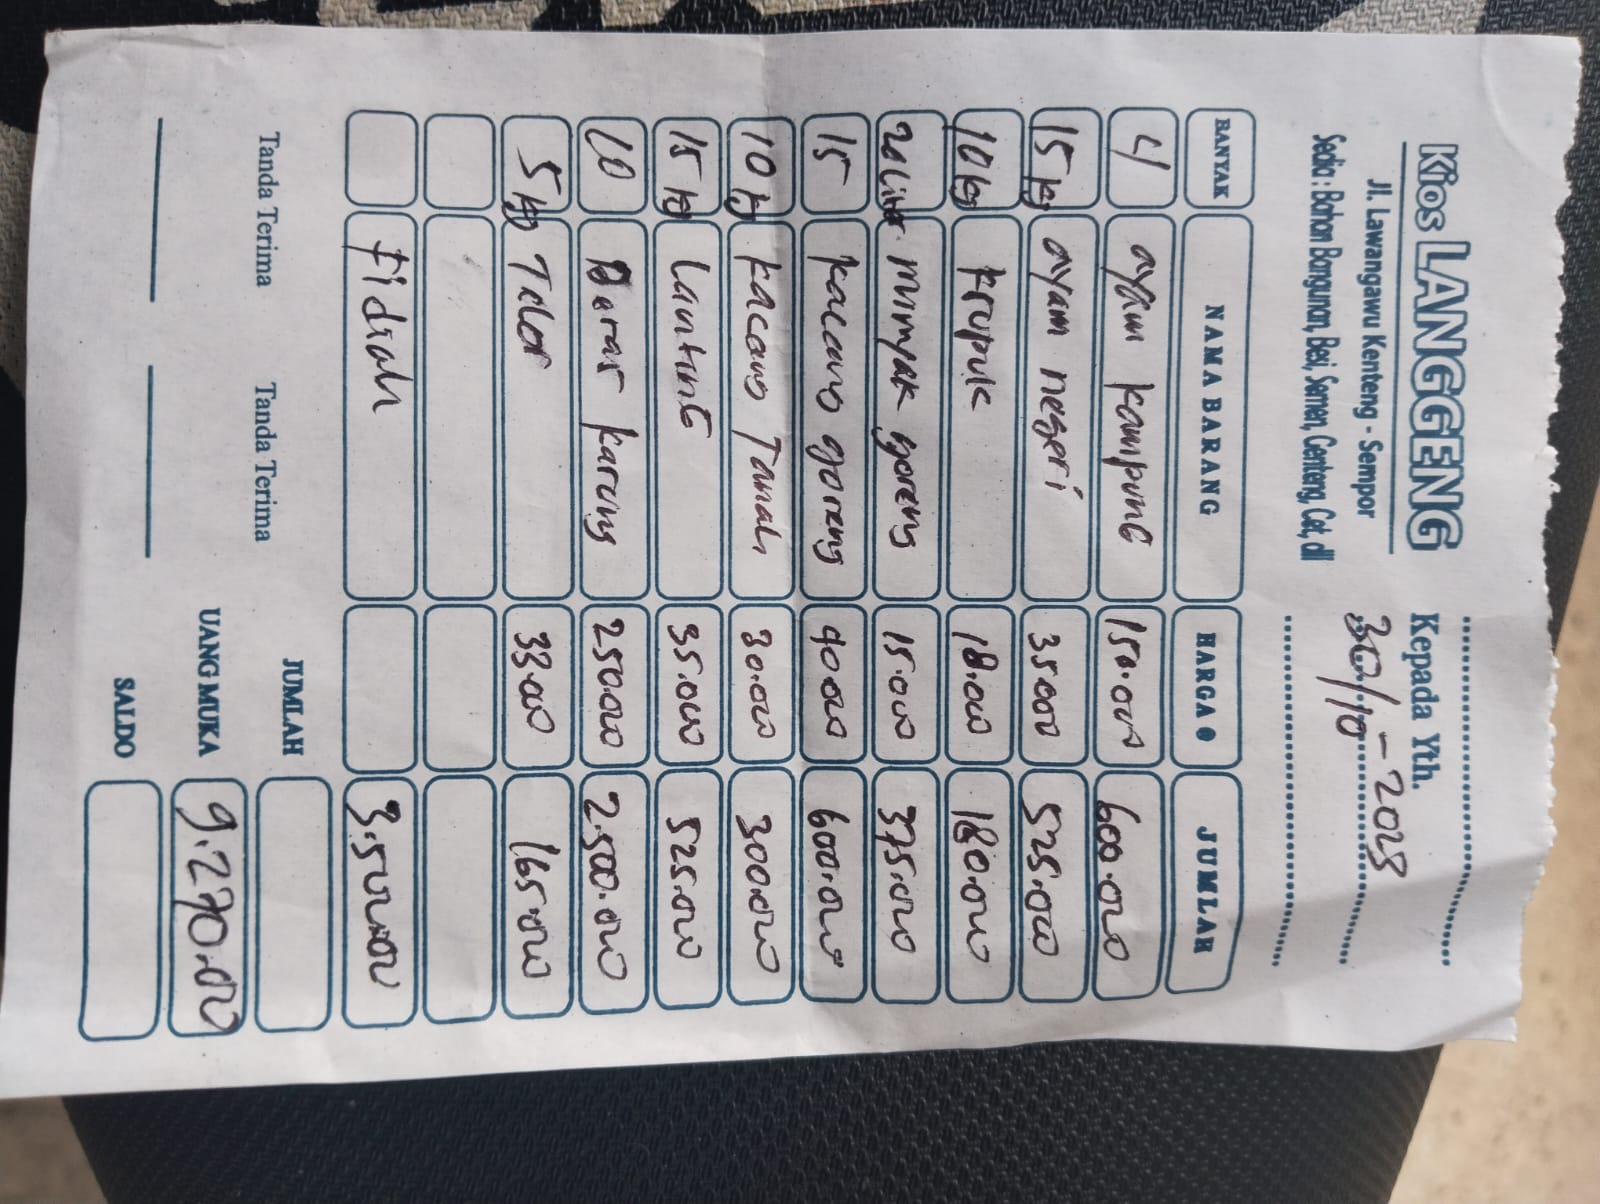 Kios LANGGENG
Jl. Lawangawu Kenteng - Sempor
Sedia : Bahan Bangunan, Besi, Semen, Genteng, Cat, dll
Kepada Yth.
30/10-2023
BANYAK NAMA BARANG HARGA @ JUMLAH
4 ayam kampung 150.000 600.000
15 kg ayam negeri 35000 525.000
10 kg krupuk 18.000 180.000
20 Liter minyak goreng 15.000 375.000
15 kacang goreng 40000 600.000
10 kg kacang Tanah 30.000 300000
15 kg Lanting 35.000 525.000
10 Beras karung 250000 2.500.000
5 kg Telor 33.000 165.000
fidiah 3.500.000
Tanda Terima Tanda Terima
JUMLAH
UANG MUKA 9.270.000
SALDO